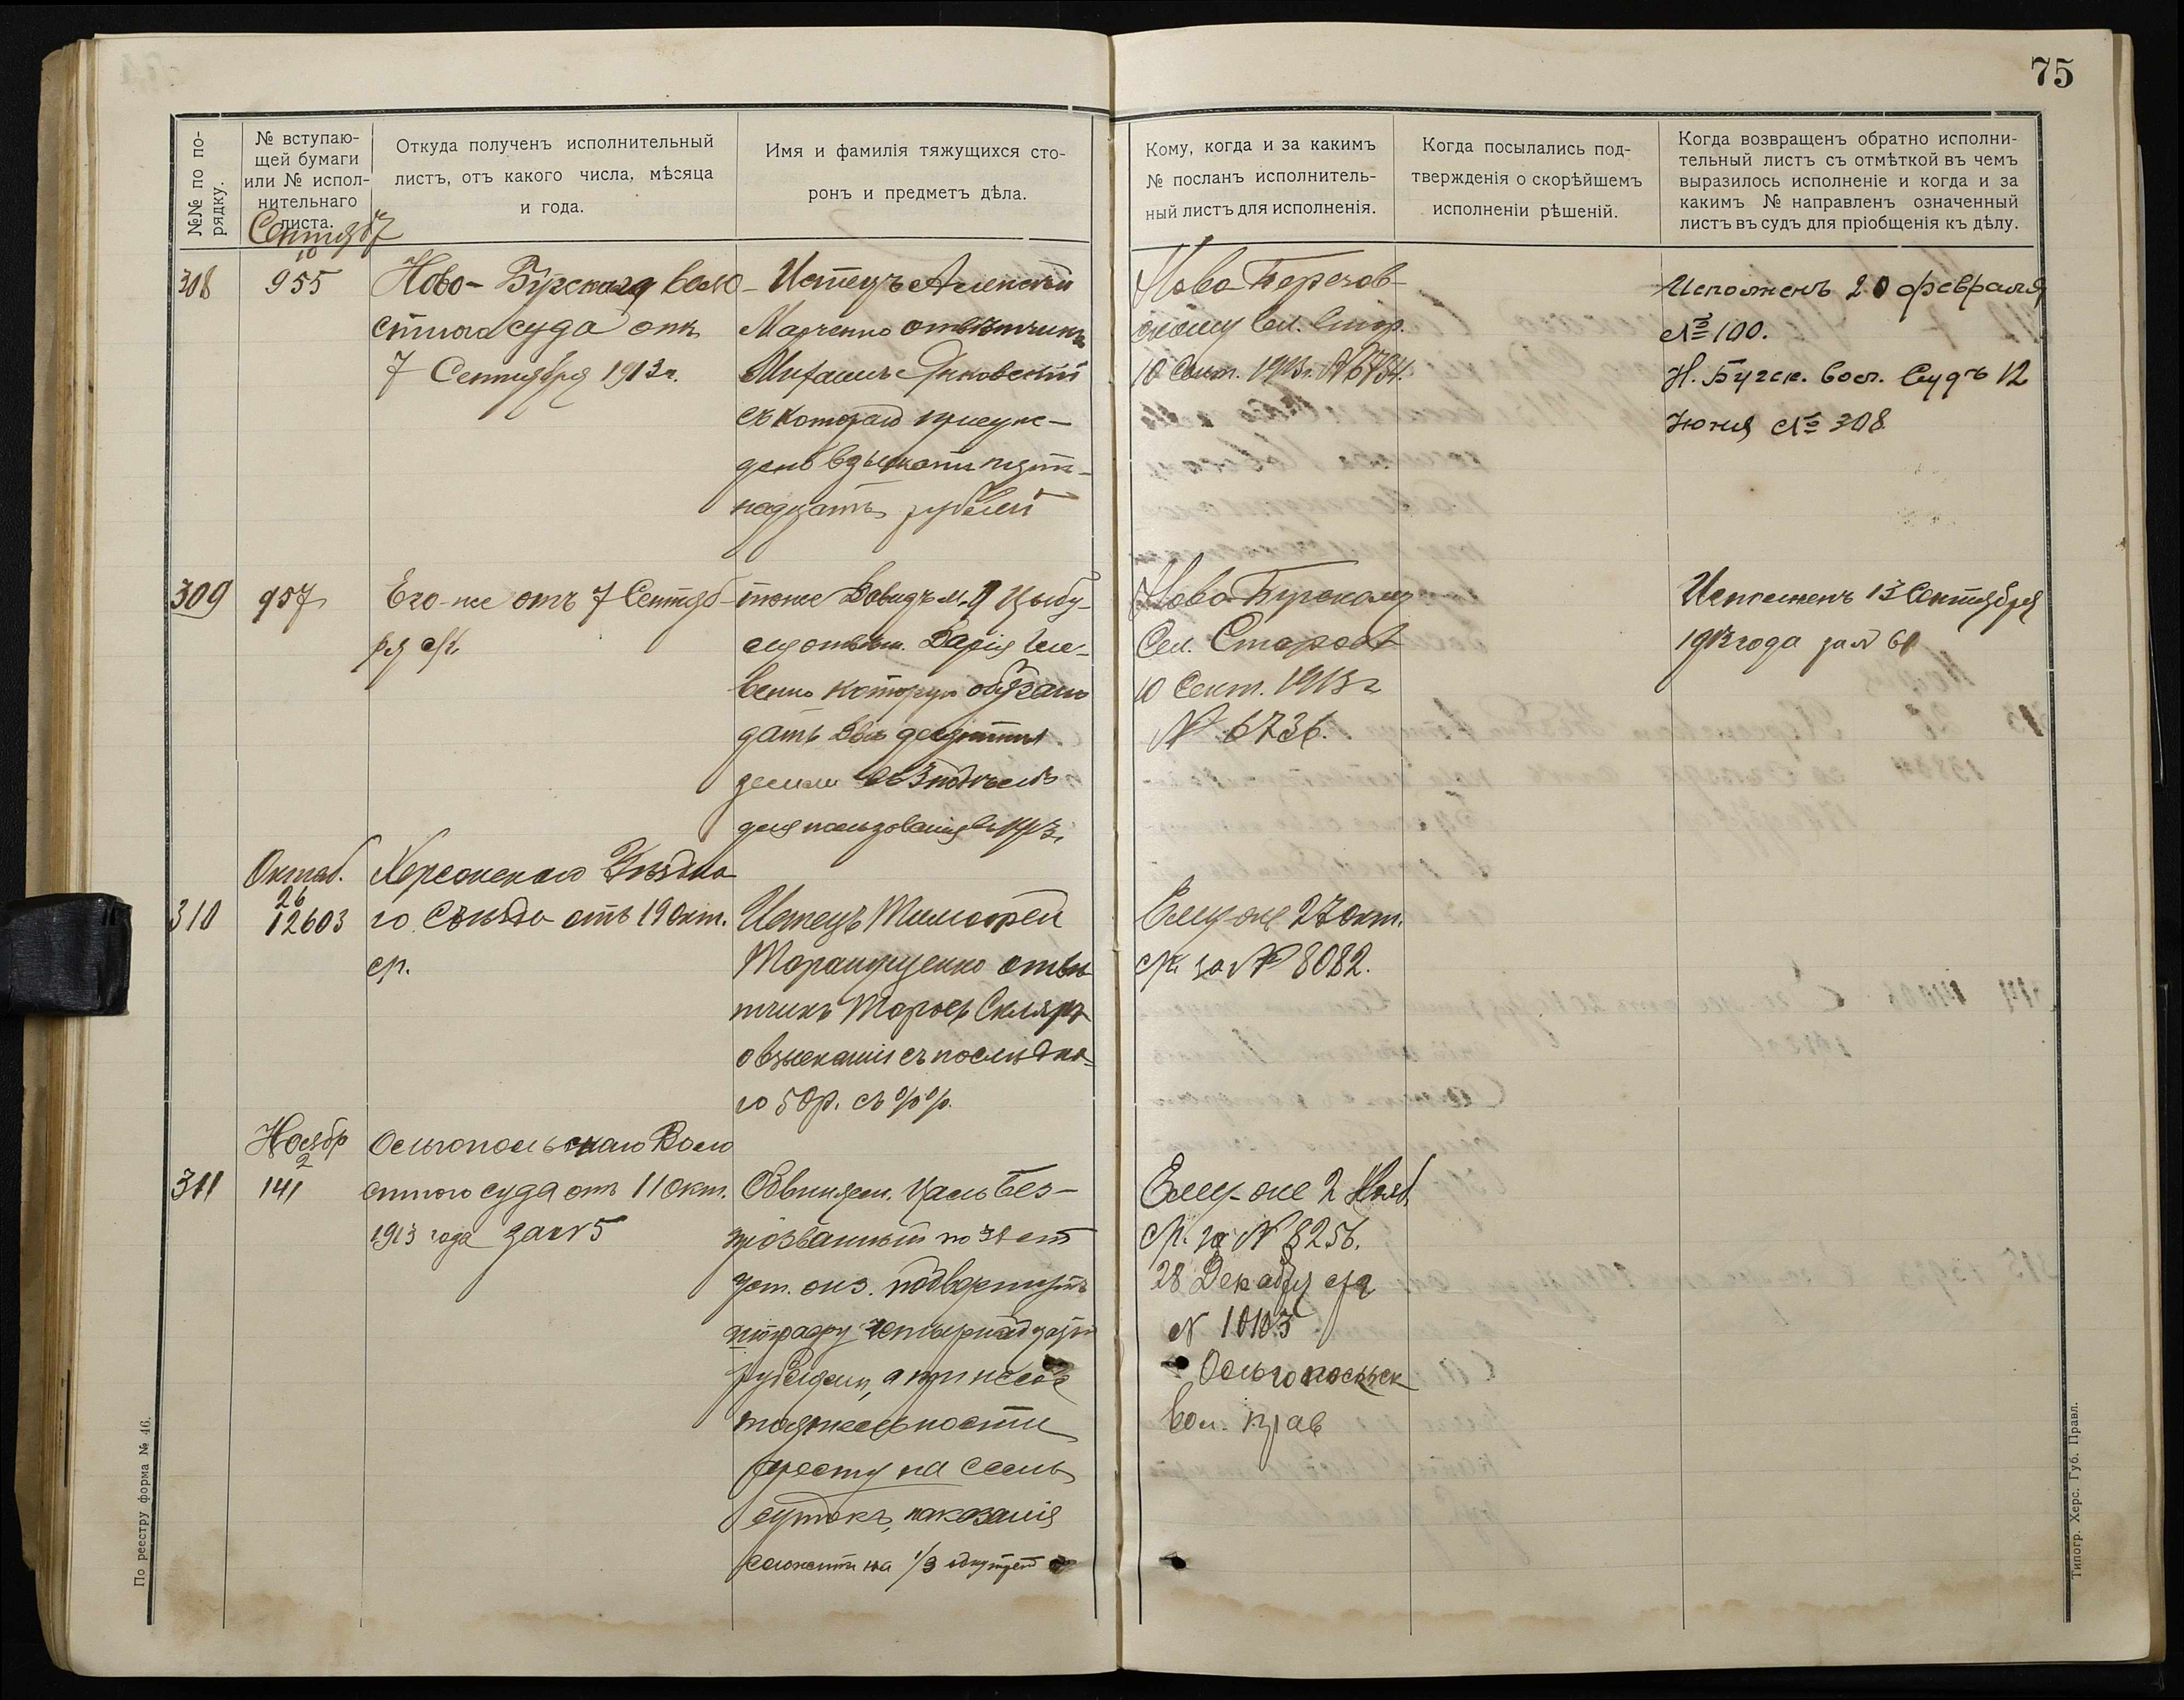 75
№№ по по-
рядку.
№ вступаю-
щей бумаги
или № испол-
нительнаго
листа.
Откуда полученъ исполнительный
листъ, отъ какого числа, мѣсяца
и года.
Имя и фамилія тяжущихся сто-
ронъ и предметъ дѣла.
Кому, когда и за какимъ
№ посланъ исполнитель-
ный листъ для исполненія.
Когда посылались под-
твержденія о скорѣйшемъ
исполненіи рѣшеній.
Когда возвращенъ обратно исполни-
тельный листъ съ отмѣткой въ чемъ
выразилось исполненіе и когда и за
какимъ № направленъ означенный
листъ въ судъ для пріобщенія къ дѣлу.
Сентябр
10
308
955
Ново-Бугскаго воло
стного суда отъ
7 Сентября 1913 г.
Истецъ Алексѣй
Марченко отвѣтчикъ
Михаилъ Янковскій
съ котораго присуж-
дено взыскати пят-
надцать рублей
10 Сент. 1913 г. № 6734.
Исполненъ 20 февраля
№ 100.
Н. Бугск. Вол. Судъ 12
Іюня № 308
309
957
Его-же отъ 7 Сентяб-
ря с/г.
тоже Давидъ Цыбу-
ля отвѣт. Дарія
которую обязано
дать двѣ десятины
земли
для пользованія
Ново-Бугскому
Сел. Старостѣ
10 Сент. 1913 г
№ 6736.
Исполненъ 13 Сентября
1913 года за № 61
Октяб.
26
310
12603
Херсонскаго Уѣздна
го Съѣзда отъ 19 окт.
с/г.
Истецъ Тимофей
отвѣ
тчикъ Скляръ
о взысканіи съ послѣдня-
го 50 р. съ %%.
Ему-же 27 окт.
с/г. за № 8082.
Ноябр
2
311
141
Ольгопольскаго Воло
стного суда отъ 11 окт.
1913 года за № 5
Обвиняем. Без-
прозванный по 38 ст
уст. о нз. подвергнуть
штрафу четырнадцати
рублямъ, а при несос
тоятельности
аресту на семь
сутокъ, наказанія
на 1/3
Ему-же 2 Нояб
с/г. за № 8256.
28 Декабря с/г
№ 10103
Ольгопольск
Вол. прав
По реестру форма № 46.
Типогр. Херс. Губ. Правл.